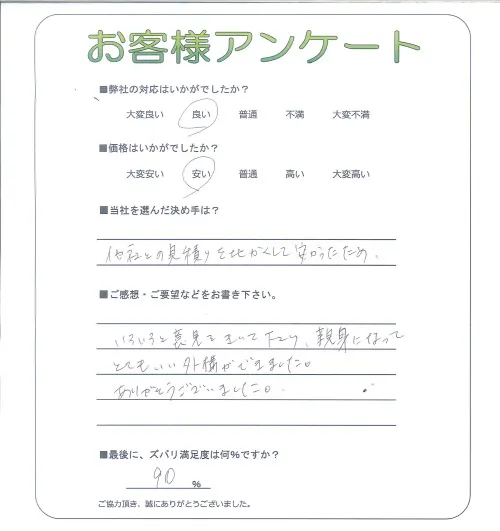 お客様アンケート
■弊社の対応はいかがでしたか？
大変良い 良い 普通 不満 大変不満
■価格はいかがでしたか？
大変安い 安い 普通 高い 大変高い
■当社を選んだ決め手は？
他社との見積りを比かくして安かったため。
■ご感想・ご要望などをお書き下さい。
いろいろと意見をきいて下さり、親身になって
とてもいい外構ができました。
ありがとうございました。
■最後に、ズバリ満足度は何％ですか？
90 ％
ご協力頂き、誠にありがとうございました。